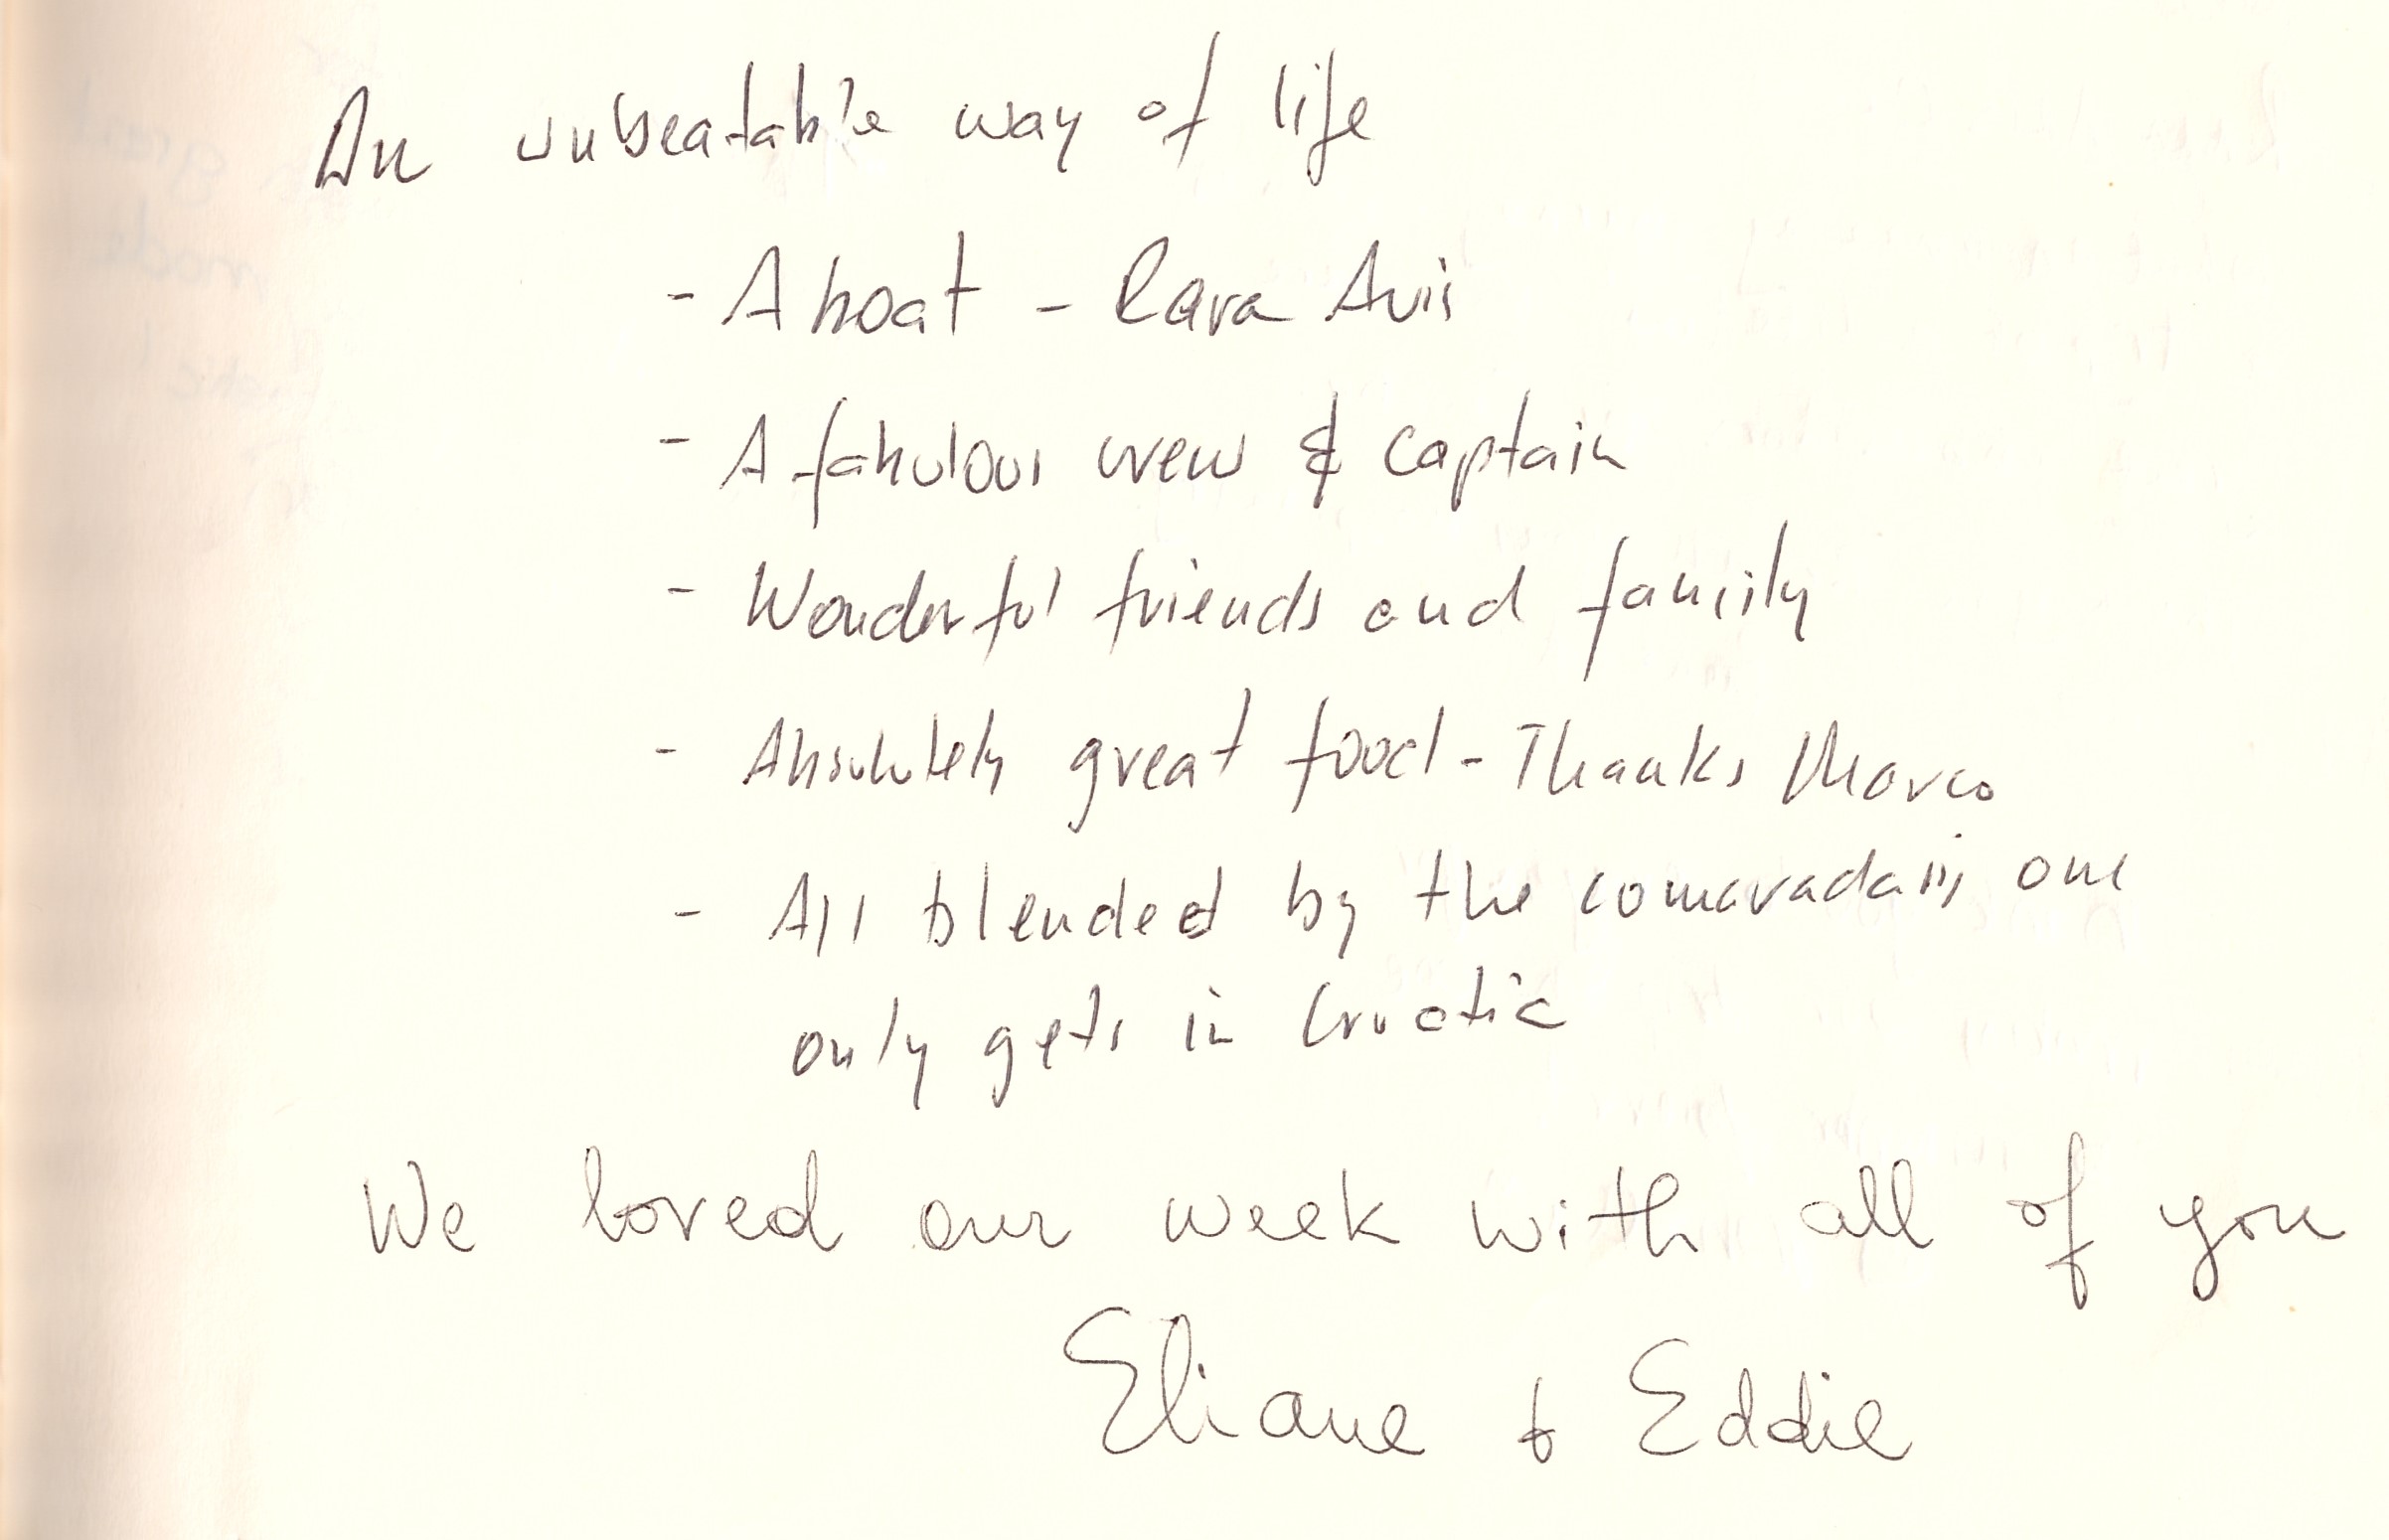 An unbeatable way of life
- A boat - Rara Avis
- A fabulous crew & captain
- Wonderful friends and family
- Absolutely great food - Thanks Marco
- All blended by the comaradarij one
only gets in Croatia
We loved our week with all of you
Eliane & Eddie